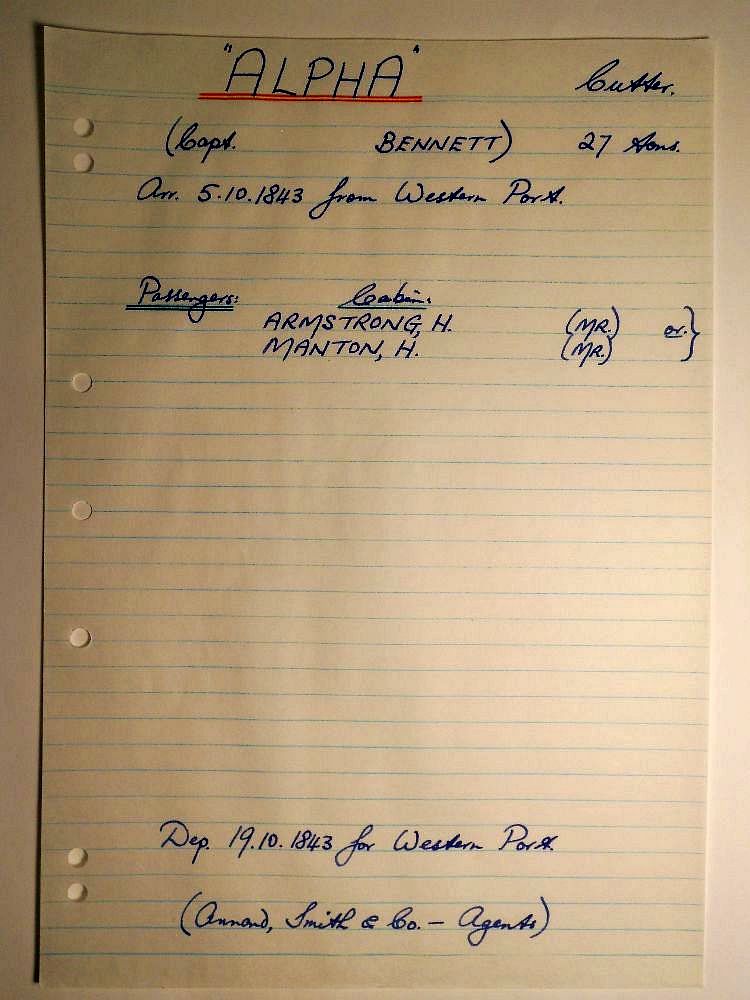 "ALPHA" Cutter.
(Capt. BENNETT) 27 tons.
Arr. 5.10.1843 from Western Port.
Passengers: Cabin:
ARMSTRONG, H. (MR.) or }
MANTON, H. (MR.)
Dep. 19.10.1843 for Western Port.
(Annand, Smith & Co. – Agents)